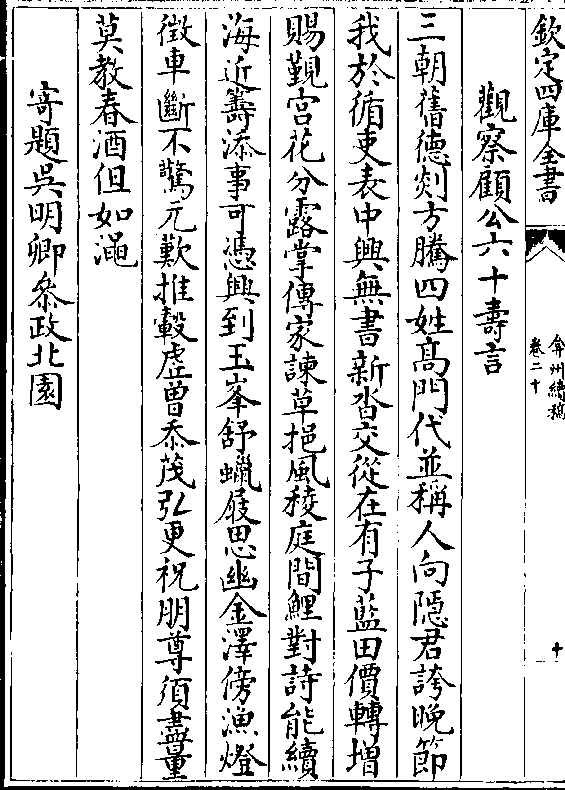 欽定四庫全書
弇州續稿
卷二十
十
觀察顧公六十壽言
三朝舊德剡方騰四姓髙門代並稱人向隱君誇晚節
我於循吏表中興無書新沓交從在有子藍田價轉増
賜觐宫花分露掌傳家諫草挹風稜庭間鯉對詩能續
海近籌添事可憑興到玉峯舒蠟屐思幽金澤傍漁燈
徴車斷不驚元歎推轂虚曽忝茂弘更祝朋尊須盡量
莫教春酒但如澠
寄題吳明卿叅政北園